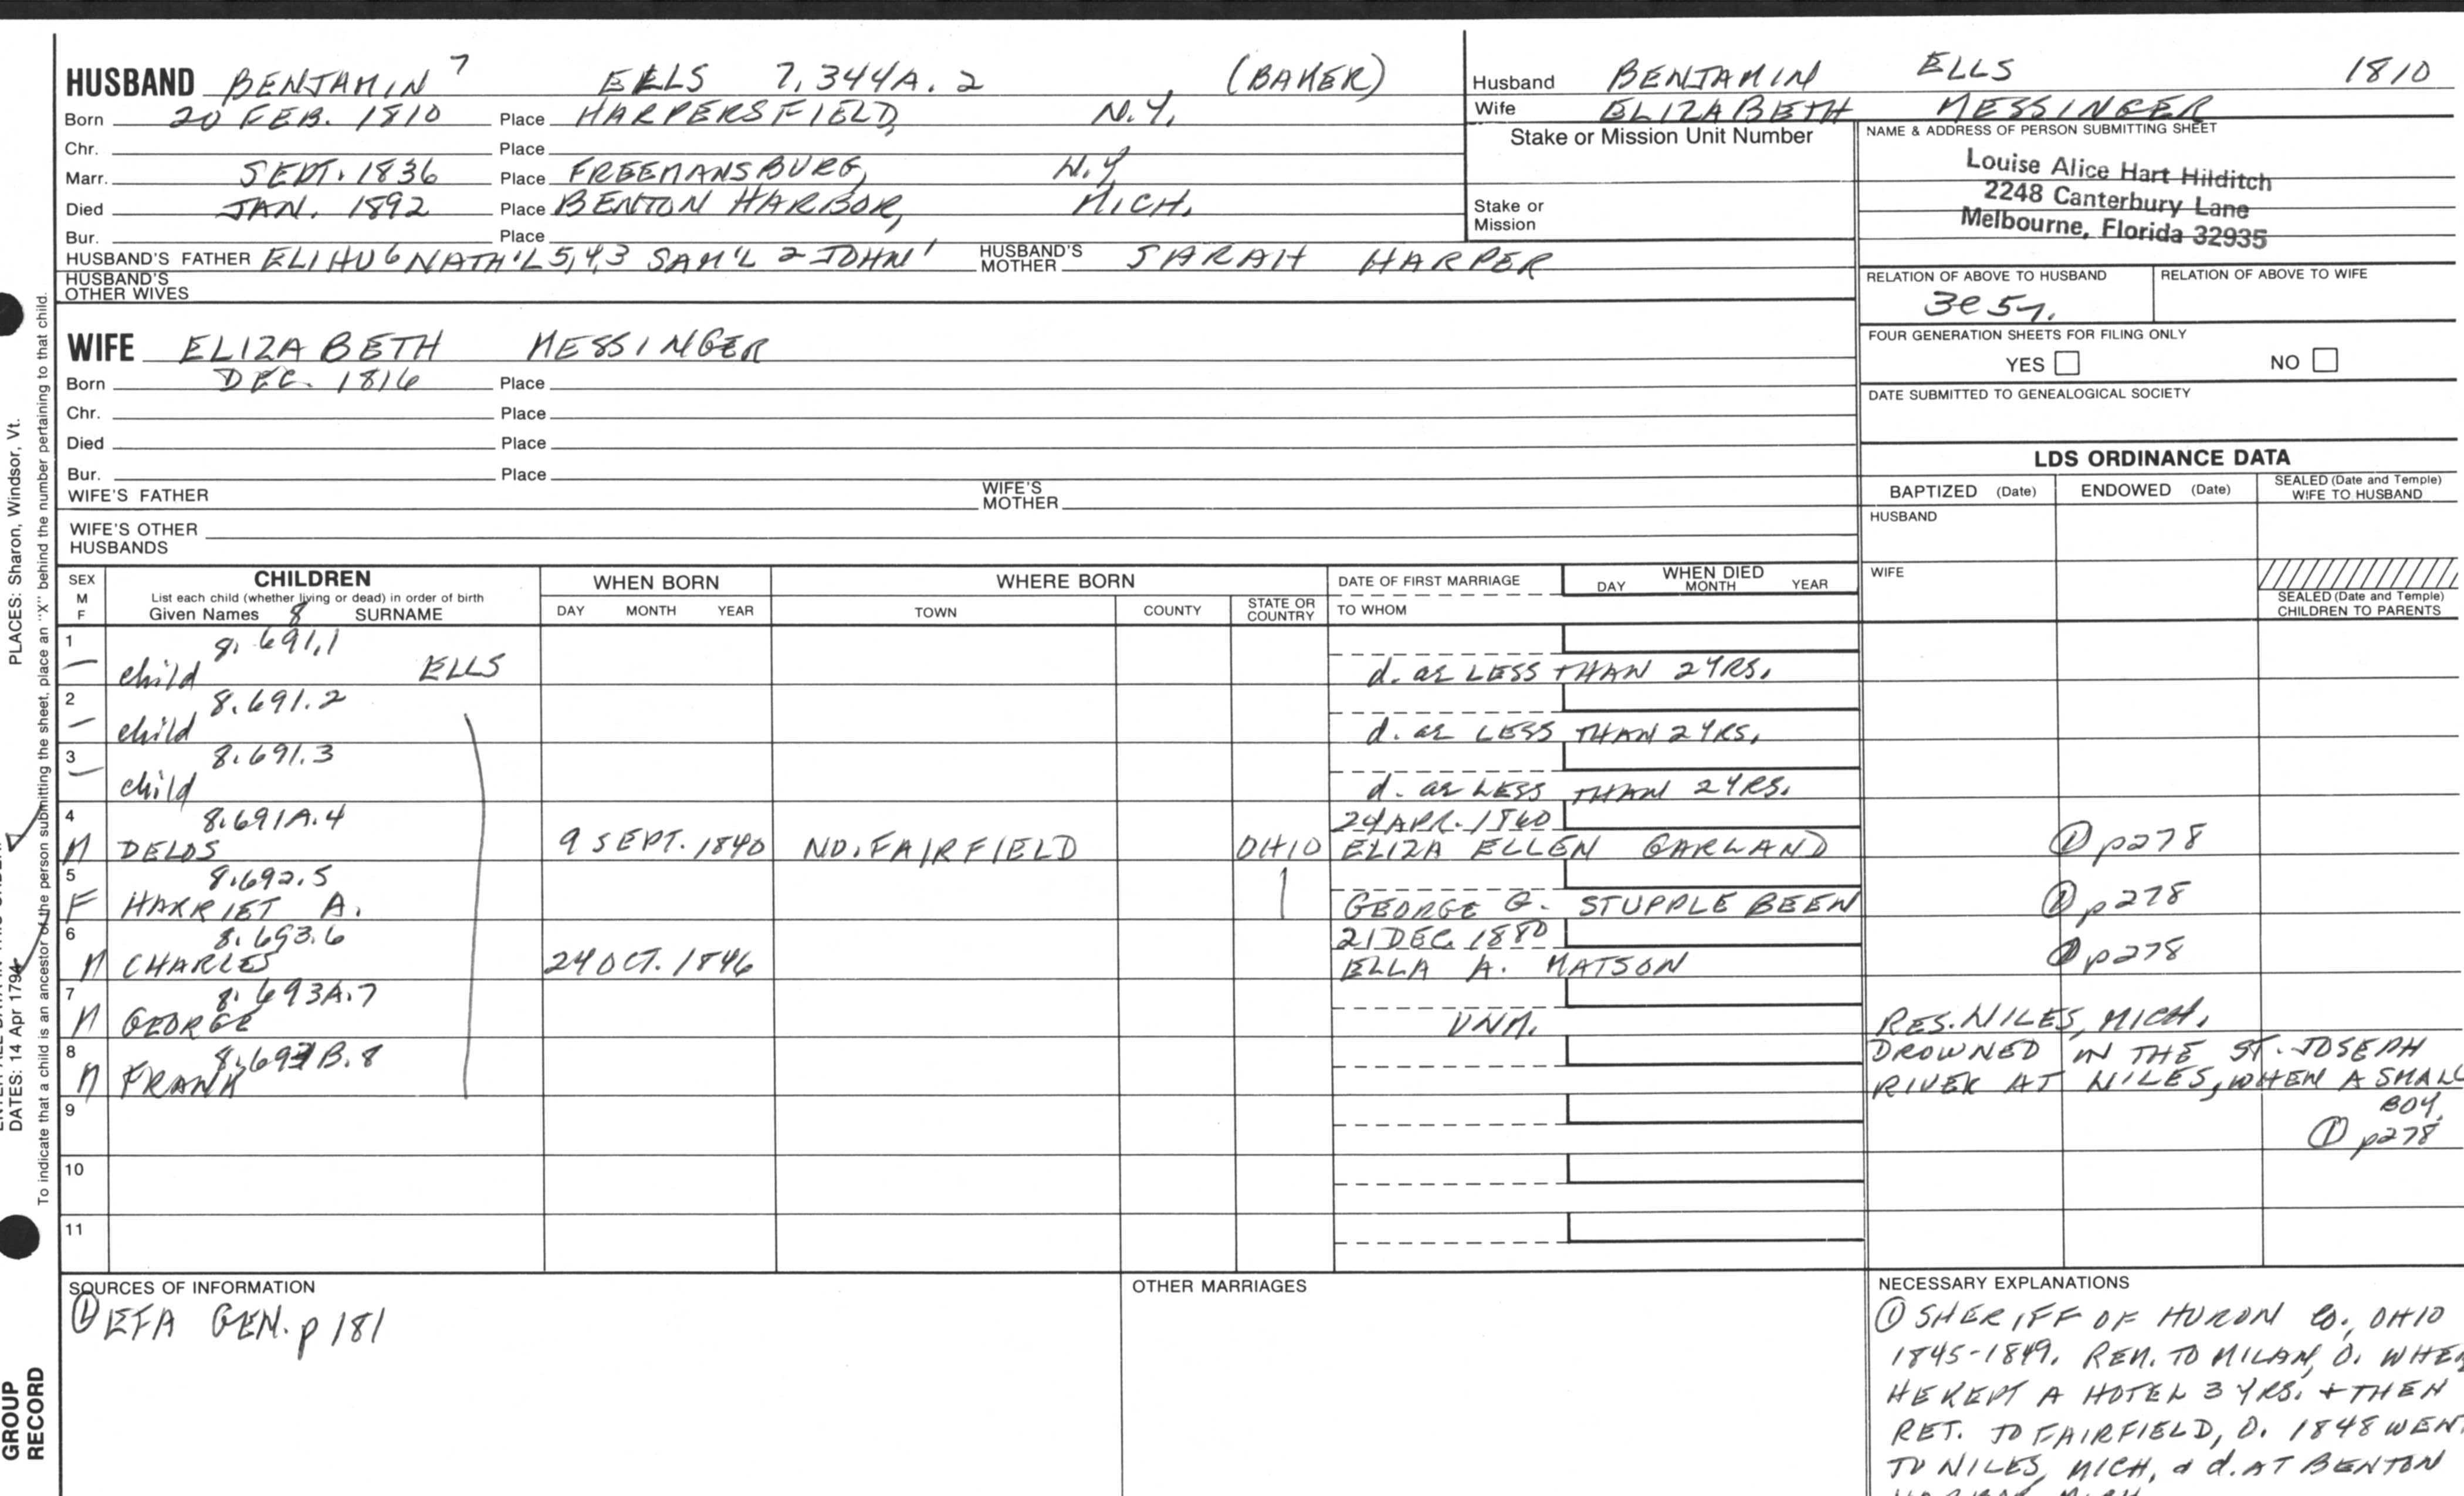 HUSBAND BENJAMIN 7 EELLS 7,344A.2 (BAKER)
Born 20 FEB. 1810 Place HARPERSFIELD, N.Y.
Chr. Place
Marr. SEPT. 1836 Place FREEMANSBURG, N.Y.
Died JAN. 1892 Place BENTON HARBOR, MICH.
Bur. Place
HUSBAND'S FATHER ELIHU 6 NATH'L 5,4,3 SAM'L 2 JOHN 1 HUSBAND'S MOTHER SARAH HARPER
HUSBAND'S OTHER WIVES
Husband BENJAMIN ELLS 1810
Wife ELIZABETH MESSINGER
Stake or Mission Unit Number
Stake or Mission
NAME & ADDRESS OF PERSON SUBMITTING SHEET
Louise Alice Hart Hilditch
2248 Canterbury Lane
Melbourne, Florida 32935
RELATION OF ABOVE TO HUSBAND RELATION OF ABOVE TO WIFE
FOUR GENERATION SHEETS FOR FILING ONLY
YES NO
DATE SUBMITTED TO GENEALOGICAL SOCIETY
WIFE ELIZABETH MESSINGER
Born DEC. 1816 Place
Chr. Place
Died Place
Bur. Place
WIFE'S FATHER WIFE'S MOTHER
WIFE'S OTHER HUSBANDS
LDS ORDINANCE DATA
BAPTIZED (Date) ENDOWED (Date) SEALED (Date and Temple) WIFE TO HUSBAND
HUSBAND
WIFE
SEALED (Date and Temple) CHILDREN TO PARENTS
SEX M F CHILDREN WHEN BORN WHERE BORN DATE OF FIRST MARRIAGE WHEN DIED
List each child (whether living or dead) in order of birth DAY MONTH YEAR
Given Names 8 SURNAME DAY MONTH YEAR TOWN COUNTY STATE OR COUNTRY TO WHOM
1 8.691.1
— child ELLS d. ae LESS THAN 2 YRS.
2 8.691.2
— child d. ae LESS THAN 2 YRS.
3 8.691.3
— child d. ae LESS THAN 2 YRS.
4 8.691A.4 24 APR. 1860
M DELOS 9 SEPT. 1840 NO. FAIRFIELD OHIO ELIZA ELLEN GARLAND ① p278
5 8.692.5
F HARRIET A. GEORGE G. STUPPLEBEEN ① p278
6 8.693.6 21 DEC. 1880
M CHARLES 24 OCT. 1846 ELLA A. MATSON ① p278
7 8.693A.7
M GEORGE UNM. RES. NILES, MICH.
8 8.693B.8 DROWNED IN THE ST. JOSEPH
M FRANK RIVER AT NILES, WHEN A SMALL
9 BOY.
① p278
10
11
SOURCES OF INFORMATION
① EFA GEN. p 181
OTHER MARRIAGES
NECESSARY EXPLANATIONS
① SHERIFF OF HURON CO., OHIO
1845-1849. REM. TO MILAN, O. WHERE
HE KEPT A HOTEL 3 YRS. + THEN
RET. TO FAIRFIELD, O. 1848 WENT
TO NILES, MICH, & d. AT BENTON
PLACES: Sharon, Windsor, Vt.
DATES: 14 Apr 1794
To indicate that a child is an ancestor of the person submitting the sheet, place an "X" behind the number pertaining to that child.
GROUP
RECORD